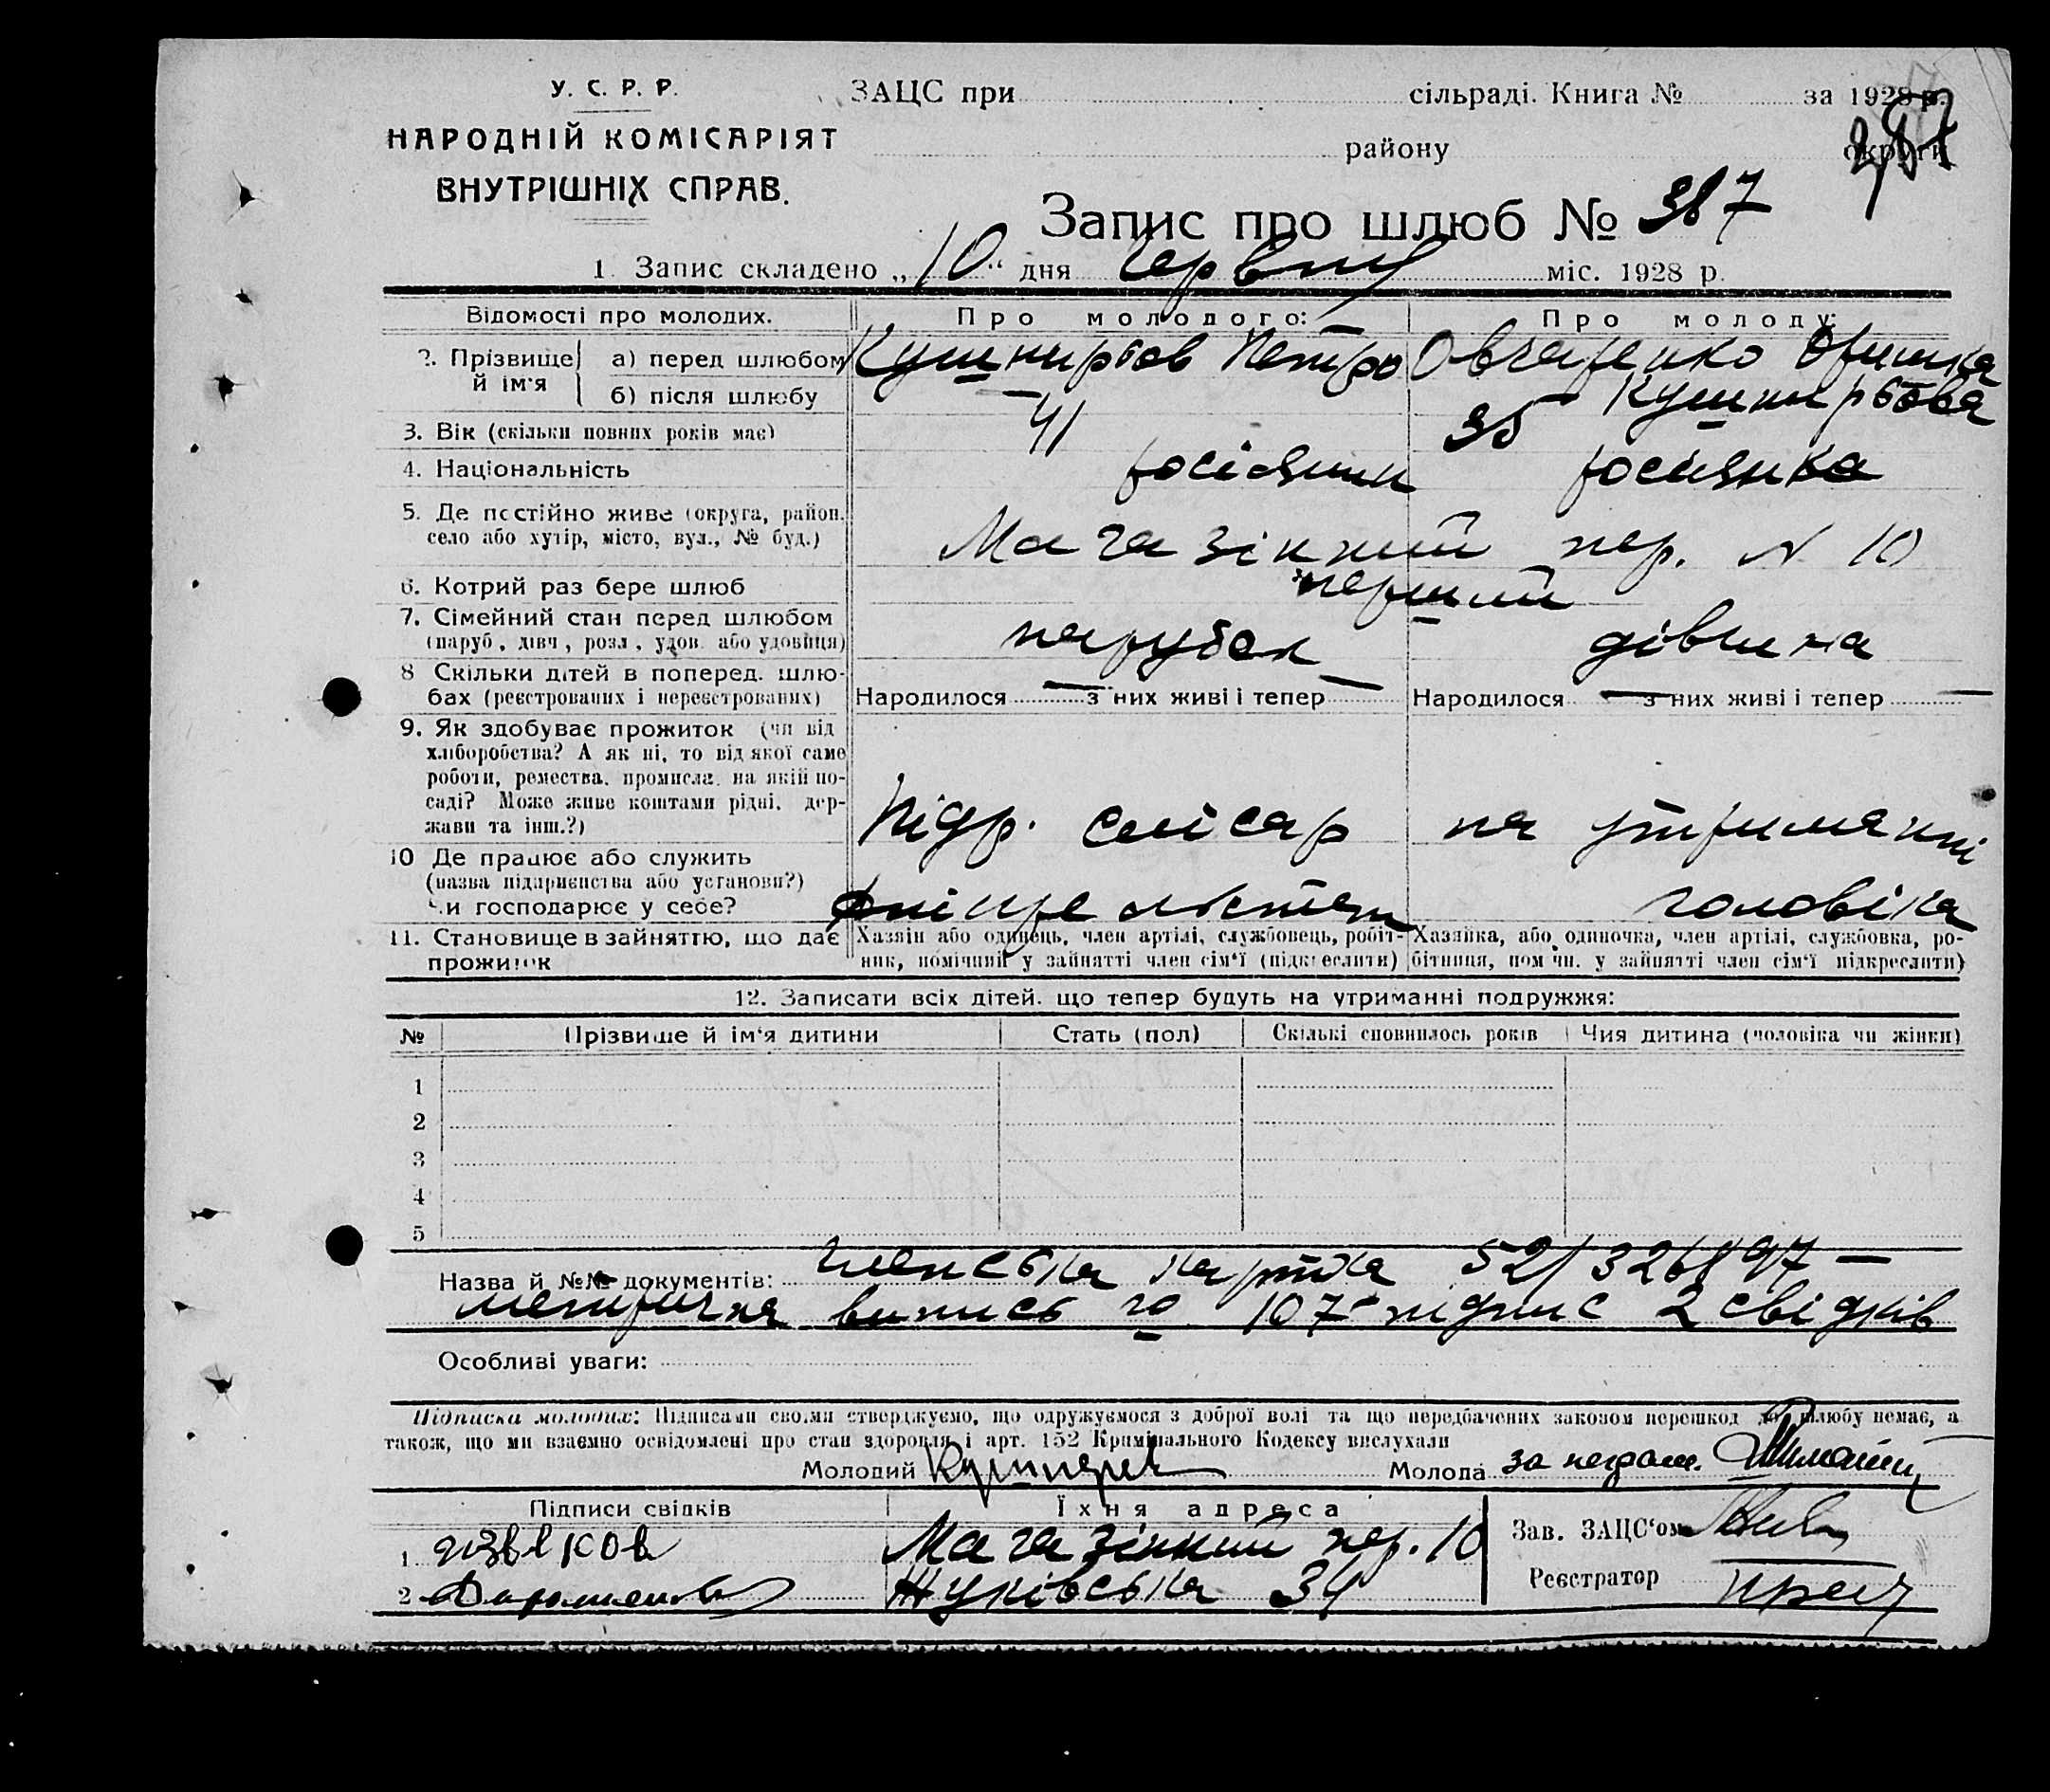 У. С. Р. Р.
НАРОДНІЙ КОМІСАРІЯТ
ВНУТРІШНІХ СПРАВ.
ЗАЦС при сільраді. Книга № за 1928 р.
району округи
Запис про шлюб № 387
1. Запис складено „10“ дня Червня міс. 1928 р.
Відомості про молодих. Про молодого: Про молоду:
2. Прізвище й ім'я а) перед шлюбом Кушнирьов Петро Овчаренко Оришка
б) після шлюбу Кушнирьова
3. Вік (скільки повних років має) 41 35
4. Національність росіянин росіянка
5. Де постійно живе (округа, район, село або хутір, місто, вул., № буд.) Магазінний пер. N 10
6. Котрий раз бере шлюб перший
7. Сімейний стан перед шлюбом (паруб., дівч., розл., удов. або удовиця) парубок дівчина
8 Скільки дітей в поперед. шлюбах (реєстрованих і нереєстрованих) Народилося — з них живі і тепер — Народилося — з них живі і тепер —
9. Як здобуває прожиток (чи від хліборобства? А як ні, то від якої саме роботи, ремества, промисла, на якій посаді? Може живе коштами рідні, держави та інш.?) Підр. слісар на утриманні
10 Де працює або служить (назва підприємства або установи?) Чи господарює у себе? чоловіка
11. Становище в зайняттю, що дає прожиток
Хазяїн або одинець, член артілі, службовець, робітник, помічний у зайнятті член сім'ї (підкреслити)
Хазяйка, або одиночка, член артілі, службовка, робітниця, пом'чн. у зайнятті член сім'ї підкреслити)
12. Записати всіх дітей, що тепер будуть на утриманні подружжя:
№ Прізвище й ім'я дитини Стать (пол) Скількі сповнилось років Чия дитина (чоловіка чи жінки)
1
2
3
4
5
Назва й №№ документів: членська картка
метрична випись 107 підпис 2 свідків
Особливі уваги:
Підписка молодих: Підписами своїми стверджуємо, що одружуємося з доброї волі та що передбачених законом перешкод до шлюбу немає, а
також, що ми взаємно освідомлені про стан здоровля і арт. 152 Кримінального Кодексу вислухали
Молодий Молода за неграм.
Підписи свідків Їхня адреса
1. Магазінний пер. 10 Зав. ЗАЦС'ом
2 Жуківська 34 Реєстратор